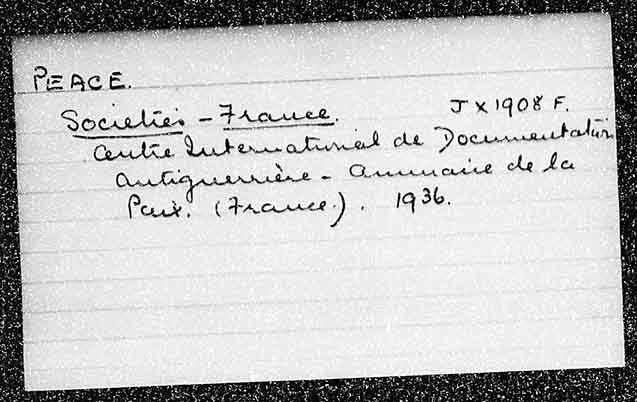 PEACE.
Societies - France. J X 1908 F.
Centre International de Documentation
Antiguerrière - Annuaire de la
Paix. (France.). 1936.